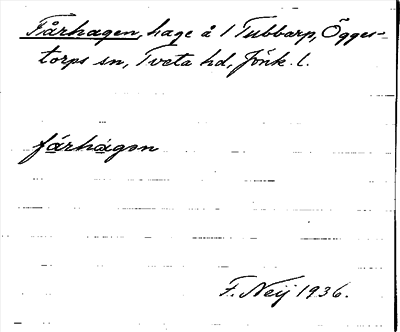 Fårhagen, hage å 1 Tubbarp, Ögges-
torps sn, Tveta hd, Jönk. l.
fárhàgɘn
F. Neij 1936.